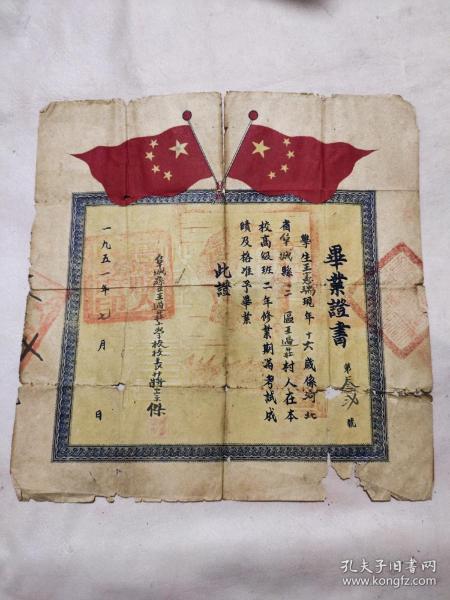 畢業證書
第叁號
學生王 瑞現年十六歲係河北
省阜城縣二區王過莊村人在本
校高級班二年修業期滿考試成
績及格准予畢業
此證
阜城縣立王過莊小學校校長
一九五一年七月 日
孔夫子旧书网
www.kongfz.com